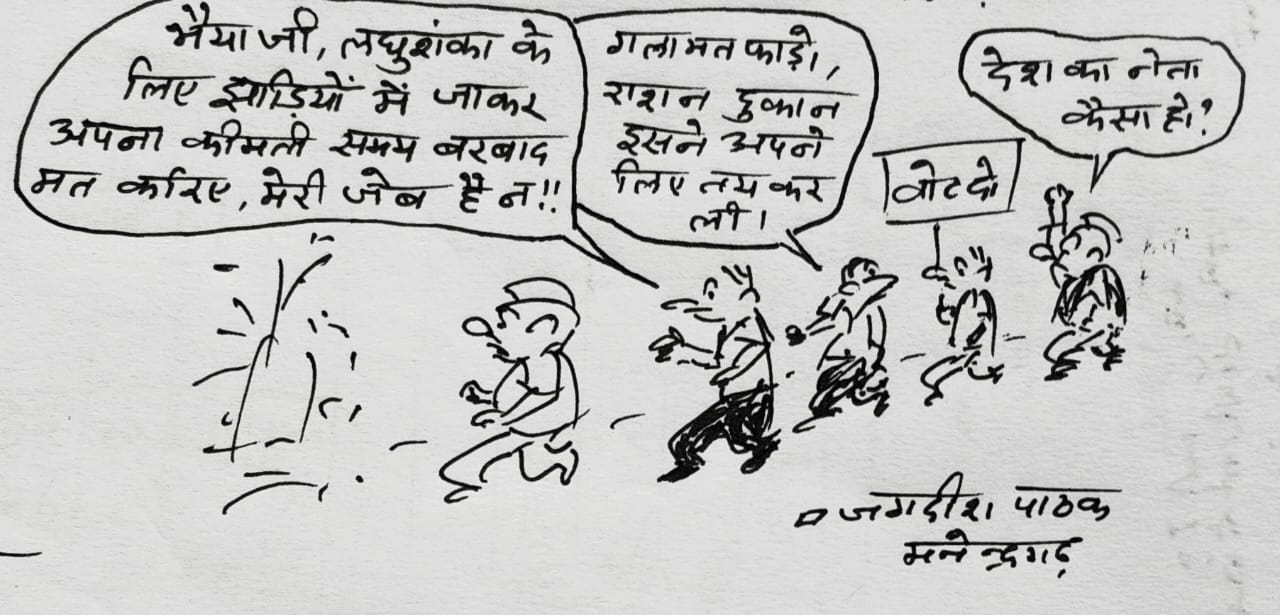 भैया जी, लघुशंका के
लिए झाड़ियों में जाकर
अपना कीमती समय बरबाद
मत करिए, मेरी जेब है न!!
गला मत फाड़ो,
राशन दुकान
इसने अपने
लिए तय कर
ली।
वोट दो
देश का नेता
कैसा हो?
जगदीश पाठक
मनेन्द्रगढ़